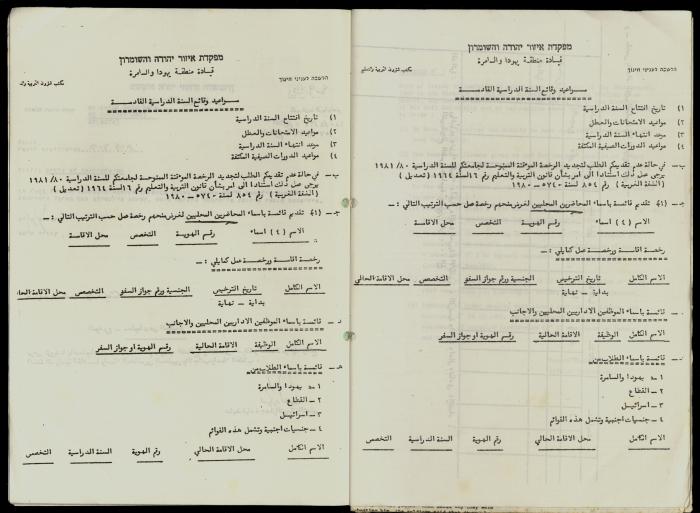 מפקדת איזור יהודה והשומרון
قيادة منطقة يهودا والسامرة
הלשכה לעניני חינוך
مكتب شؤون التربية والت
مواعيد وقائع السنة الدراسية القادمة
١) تاريخ افتتاح السنة الدراسية
٢) مواعيد الامتحانات والعطل
٣) موعد انتهاء السنة الدراسية
٤) مواعيد الدورات الصيفية المكثفة
ب- في حالة عدم تقديمكم الطلب لتجديد الرخصة المؤقتة الممنوحة لجامعتكم للسنة الدراسية ١٩٨١/٨٠
يرجى عمل ذلك استنادا الى امر بشأن قانون التربية والتعليم رقم ١٦ لسنة ١٩٦٤ (تعديل)
(الضفة الغربية) رقم ٨٥٤ لسنة ٥٧٤٠ - ١٩٨٠
جـ- (١) تقديم قائمة باسماء المحاضرين المحليين لغرض منحهم رخصة عمل حسب الترتيب التالي :-
الاسم (٤) اسماء رقم الهوية التخصص محل الاقامة
رخصة اقامة ورخصة عمل كمايلي :-
الاسم الكامل تاريخ الترخيص الجنسية ورقم جواز السفر التخصص محل الاقامة الحا
بداية - نهاية
د- قائمة باسماء الموظفين الاداريين المحليين والاجانب
الاسم الكامل الوظيفة الاقامة الحالية رقم الهوية او جواز السفر
هـ- قائمة باسماء الطلاب من
١ - يهودا والسامرة
٢ - القطاع
٣ - اسرائيل
٤ - جنسيات اجنبية وتشمل هذه القوائم
الاسم الكامل محل الاقامة الحالي رقم الهوية السنة الدراسية التخصص
מפקדת איזור יהודה והשומרון
قيادة منطقة يهودا والسامرة
הלשכה לעניני חינוך
مكتب شؤون التربية والتعليم
مواعيد وقائع السنة الدراسية القادمة
١) تاريخ افتتاح السنة الدراسية
٢) مواعيد الامتحانات والعطل
٣) موعد انتهاء السنة الدراسية
٤) مواعيد الدورات الصيفية المكثفة
ب- في حالة عدم تقديمكم الطلب لتجديد الرخصة المؤقتة الممنوحة لجامعتكم للسنة الدراسية ١٩٨١/٨٠
يرجى عمل ذلك استنادا الى امر بشأن قانون التربية والتعليم رقم ١٦ لسنة ١٩٦٤ (تعديل)
(الضفة الغربية) رقم ٨٥٤ لسنة ٥٧٤٠ - ١٩٨٠
جـ- (١) تقديم قائمة باسماء المحاضرين المحليين لغرض منحهم رخصة عمل حسب الترتيب التالي :-
الاسم (٤) اسماء رقم الهوية التخصص محل الاقامة
رخصة اقامة ورخصة عمل كمايلي :-
الاسم الكامل تاريخ الترخيص الجنسية ورقم جواز السفر التخصص محل الاقامة الحالي
بداية - نهاية
د- قائمة باسماء الموظفين الاداريين المحليين والاجانب
الاسم الكامل الوظيفة الاقامة الحالية رقم الهوية او جواز السفر
هـ- قائمة باسماء الطلاب من
١ - يهودا والسامرة
٢ - القطاع
٣ - اسرائيل
٤ - جنسيات اجنبية وتشمل هذه القوائم
الاسم الكامل محل الاقامة الحالي رقم الهوية السنة الدراسية التخصص